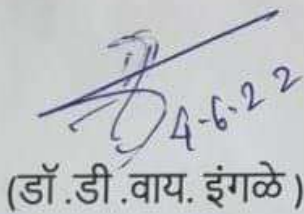 4-6-22
(डॉ.डी.वाय. इंगळे)